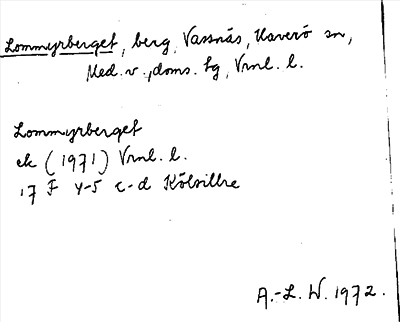 Lommyrberget, berg, Vassnäs, Haverö sn,
Med. v., doms. tg, Vrnl. l.
Lommyrberget
ek (1971) Vrnl. l.
17 F 4-5 c-d Kölsillre
A.-L. W. 1972.